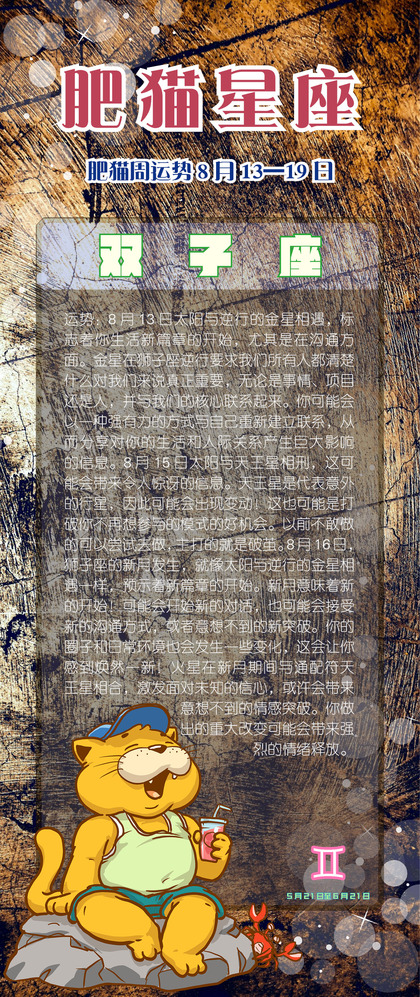 肥猫星座
肥猫周运势8月13—19日
双子座
运势，8月13日太阳与逆行的金星相遇，标
志着你生活新篇章的开始，尤其是在沟通方
面。金星在狮子座逆行要求我们所有人都清楚
什么对我们来说真正重要，无论是事情、项目
还是人，并与我们的核心联系起来。你可能会
以一种强有力的方式与自己重新建立联系，从
而分享对你的生活和人际关系产生巨大影响
的信息。8月15日太阳与天王星相刑，这可
能会带来令人惊讶的信息。天王星是代表意外
的行星，因此可能会出现变动！这也可能是打
破你不再想参与的模式的好机会。以前不敢做
的可以尝试去做，主打的就是破茧。8月16日，
狮子座的新月发生，就像太阳与逆行的金星相
遇一样，预示着新篇章的开始。新月意味着新
的开始！可能会开始新的对话，也可能会接受
新的沟通方式，或者意想不到的新突破。你的
圈子和日常环境也会发生一些变化，这会让你
感到焕然一新！火星在新月期间与通配符天
王星相合，激发面对未知的信心，或许会带来
意想不到的情感突破。你做
出的重大改变可能会带来强
烈的情绪释放。
5月21日至6月21日